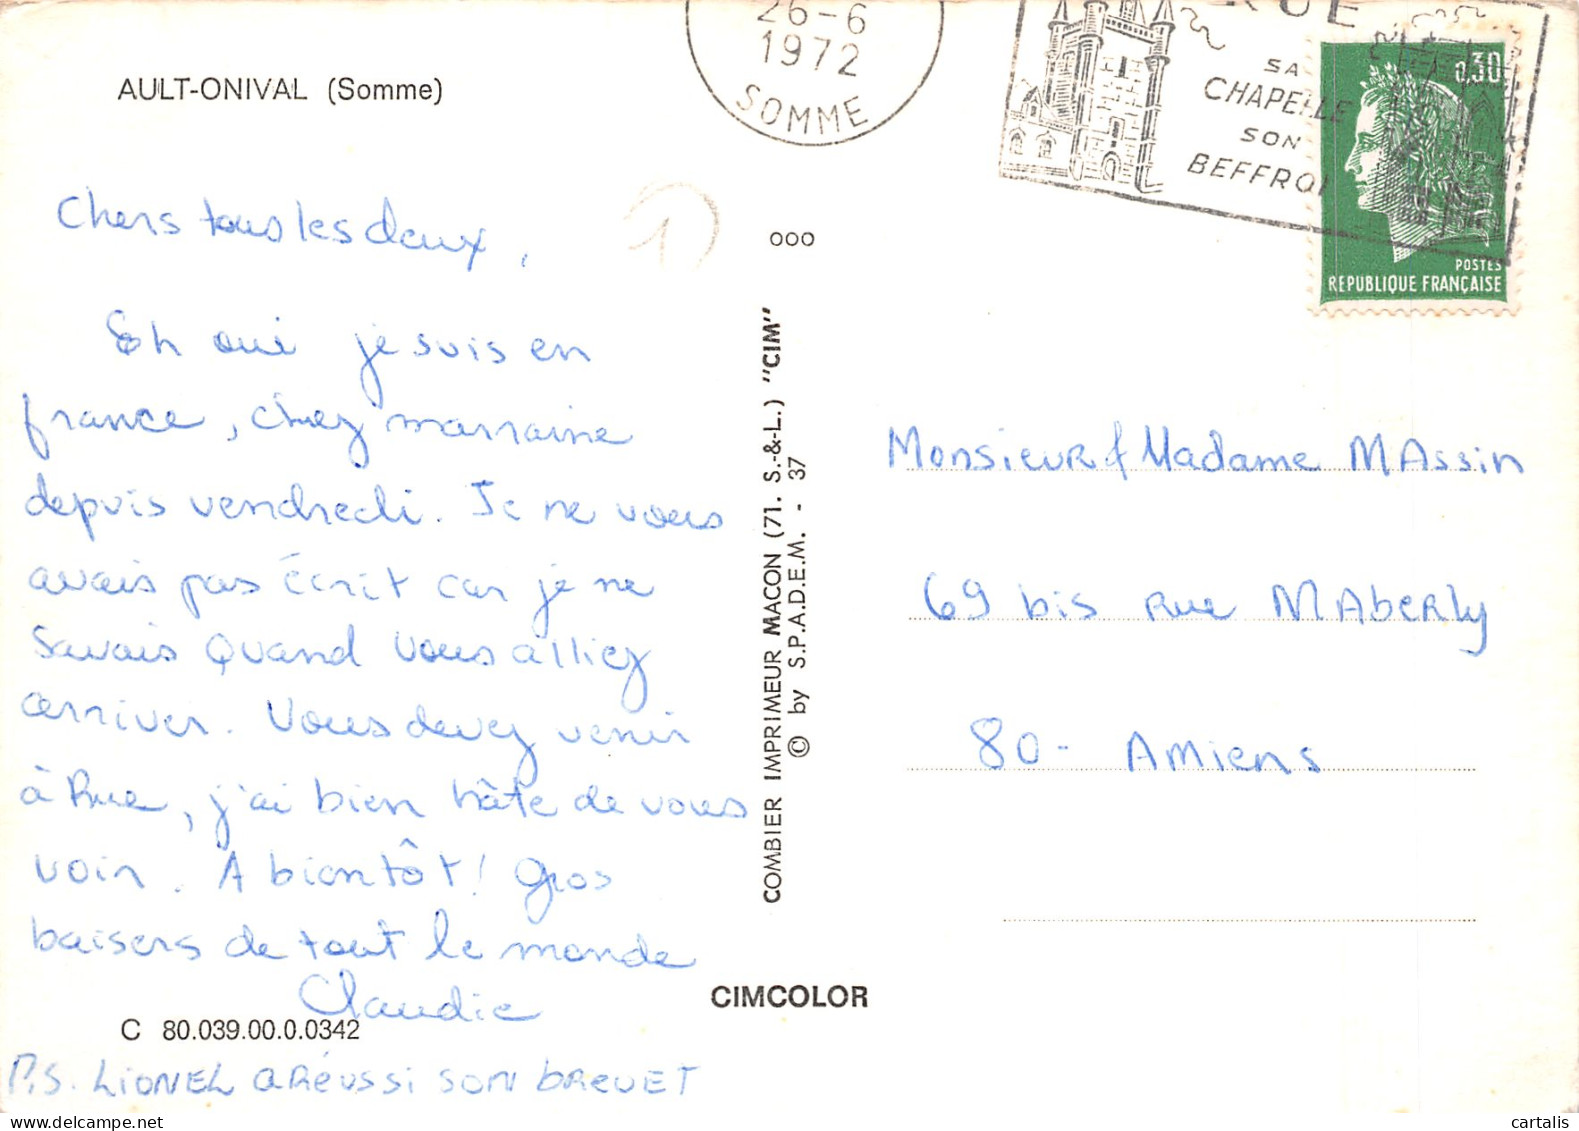 AULT-ONIVAL (Somme)
26-6
1972
SOMME
RUE
SA
CHAPELLE
SON
BEFFROI
0,30
POSTES
REPUBLIQUE FRANÇAISE
Chers tous les deux,
Eh oui je suis en
france, chez marraine
depuis vendredi. Je ne vous
avais pas écrit car je ne
savais quand vous alliez
arriver. Vous devez venir
à Rue, j'ai bien hâte de vous
voir. A bientôt! Gros
baisers de tout le monde
Claudie
C 80.039.00.0.0342
P.S. LIONEL a RÉUSSI SON BREVET
000
COMBIER IMPRIMEUR MACON (71. S.-&-L.) "CIM"
© by S.P.A.D.E.M. - 37
CIMCOLOR
Monsieur & Madame MAssin
69 bis Rue MAberly
80- Amiens
cartalis